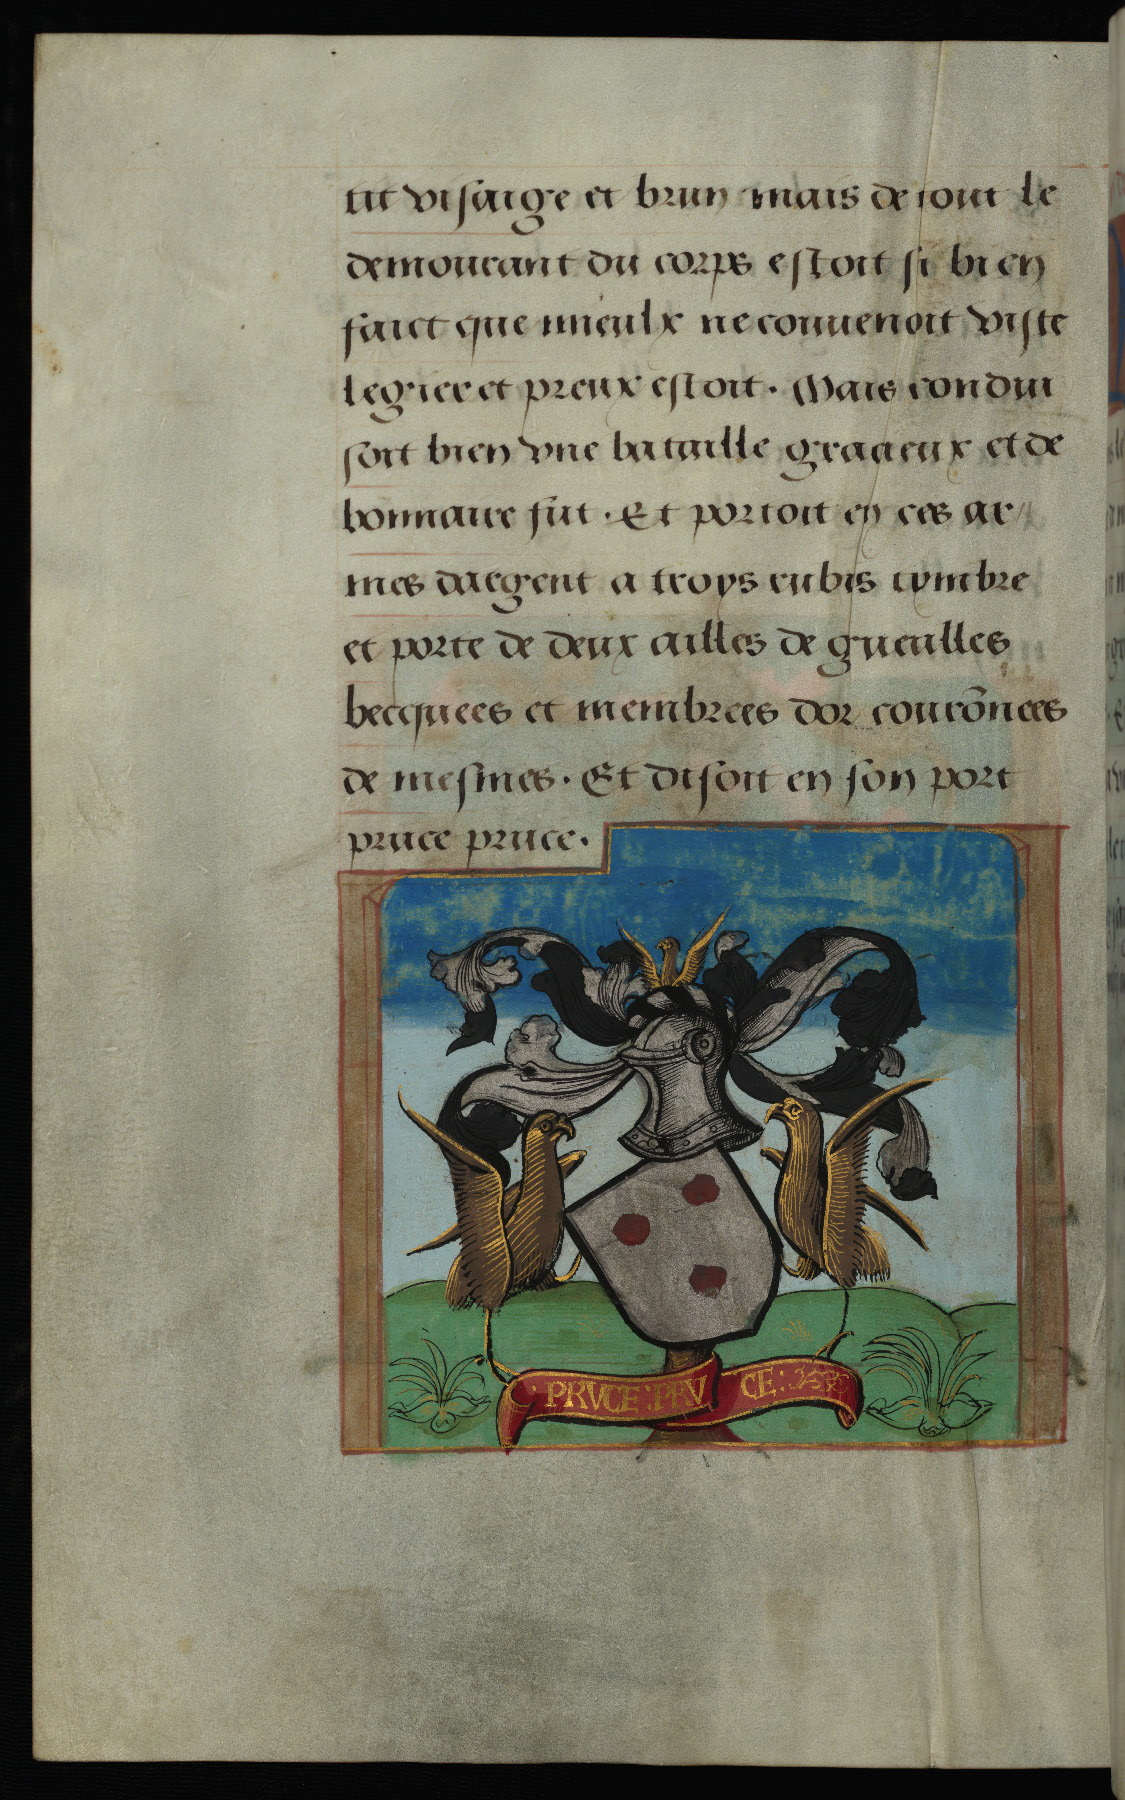 tit visaige et brun mais de tout le
demourant du corps estoit si bien
faict que mieulx ne couuenoit viste
legier et preux estoit. Mais condui
soit bien vne bataille gracieux et de
bonnaire fut. Et portoit en ces ar
mes dargent a troys rubis tymbre
et porte de deux ailles de gueulles
becquees et membrees dor courõnees
de mesmes. Et disoit en son port
pruce pruce.
: PRVCE : PRV CE :